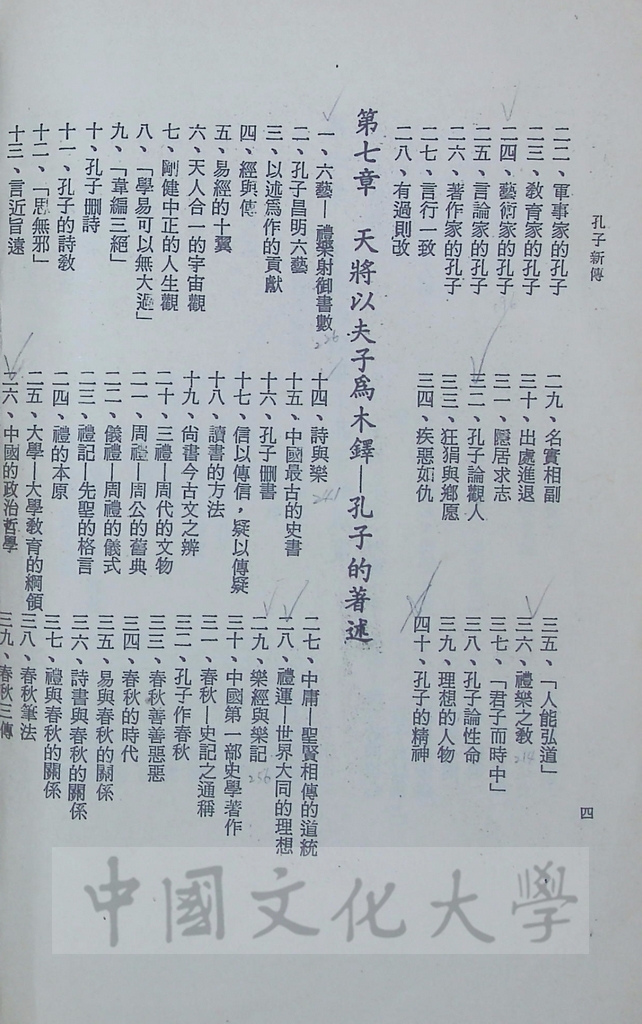 孔子新傳
二二、軍事家的孔子
二三、教育家的孔子
二四、藝術家的孔子
二五、言論家的孔子
二六、著作家的孔子
二七、言行一致
二八、有過則改
二九、名實相副
三十、出處進退
三一、隱居求志
三二、孔子論觀人
三三、狂狷與鄉愿
三四、疾惡如仇
三五、「人能弘道」
三六、禮樂之教
三七、「君子而時中」
三八、孔子論性命
三九、理想的人物
四十、孔子的精神
第七章　天將以夫子爲木鐸—孔子的著述
一、六藝—禮樂射御書數
二、孔子昌明六藝
三、以述爲作的貢獻
四、經與傳
五、易經的十翼
六、天人合一的宇宙觀
七、剛健中正的人生觀
八、「學易可以無大過」
九、「韋編三絕」
十、孔子刪詩
十一、孔子的詩教
十二、「思無邪」
十三、言近旨遠
十四、詩與樂
十五、中國最古的史書
十六、孔子刪書
十七、信以傳信，疑以傳疑
十八、讀書的方法
十九、尚書今古文之辨
二十、三禮—周代的文物
二一、周禮—周公的舊典
二二、儀禮—周禮的儀式
二三、禮記—先聖的格言
二四、禮的本原
二五、大學—大學教育的綱領
二六、中國的政治哲學
二七、中庸—聖賢相傳的道統
二八、禮運—世界大同的理想
二九、樂經與樂記
三十、中國第一部史學著作
三一、春秋—史記之通稱
三二、孔子作春秋
三三、春秋善善惡惡
三四、春秋的時代
三五、易與春秋的關係
三六、詩書與春秋的關係
三七、禮與春秋的關係
三八、春秋筆法
三九、春秋三傳
四
236
241
214
256
中國文化大學